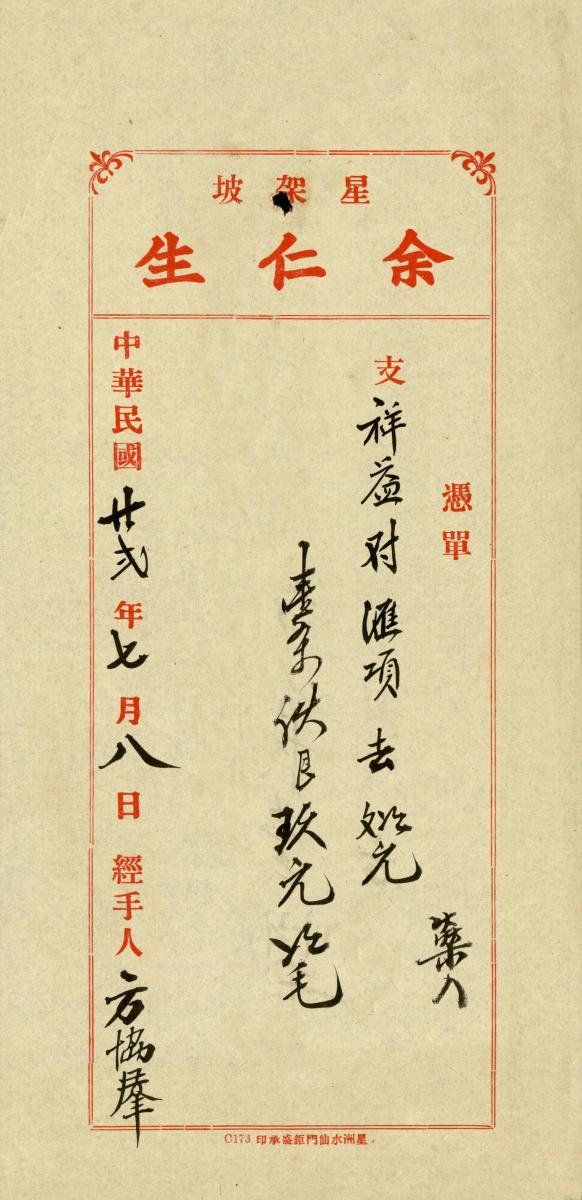 星架坡
余仁生
憑單
支祥益对滙項去元
伏艮玖元毛
藥入
中華民國廿弍年七月八日經手人方協羣
星洲水仙門鉅盛承印 C173